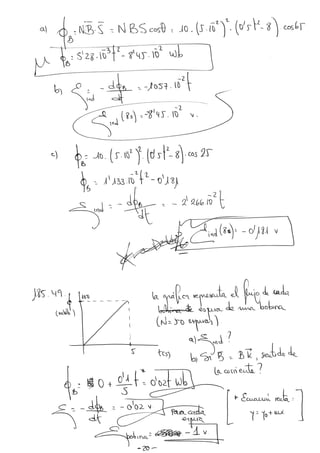 a) ϕ_B = N·B̄·S̄ = N B S cosθ = 10·(5·10⁻²)²·(0'5t²-8) cos65
ϕ_B = 5'28·10⁻³t² - 8'45·10⁻² Wb
b) ε_ind = - dϕ_B/dt = -1057·10⁻²t
ε_ind (8s) = -8'45·10⁻² v.
c) ϕ_B = 10·(5·10⁻²)²·(0'5t²-8)·cos 25
ϕ_B = 1'133·10⁻²t² - 0'181
ε_ind = - dϕ_B/dt = -2'266·10⁻²t
ε_ind (8s) = -0'181 v
185.49
ϕ
100
(mWb)
5
t(s)
la gráfica representa el flujo de cada
espira de una bobina
(N=50 espiras)
a) ε_ind?
b) Si B̄ = B k̄, sentido de
la corriente?
ϕ_B = 0 + 0'1/5 t* = 0'02t Wb
ε = - dϕ_B/dt = -0'02 v
Para cada
espira
* Ecuación recta:
y = y₀ + mx
ε_bobina = -1 v
-20-